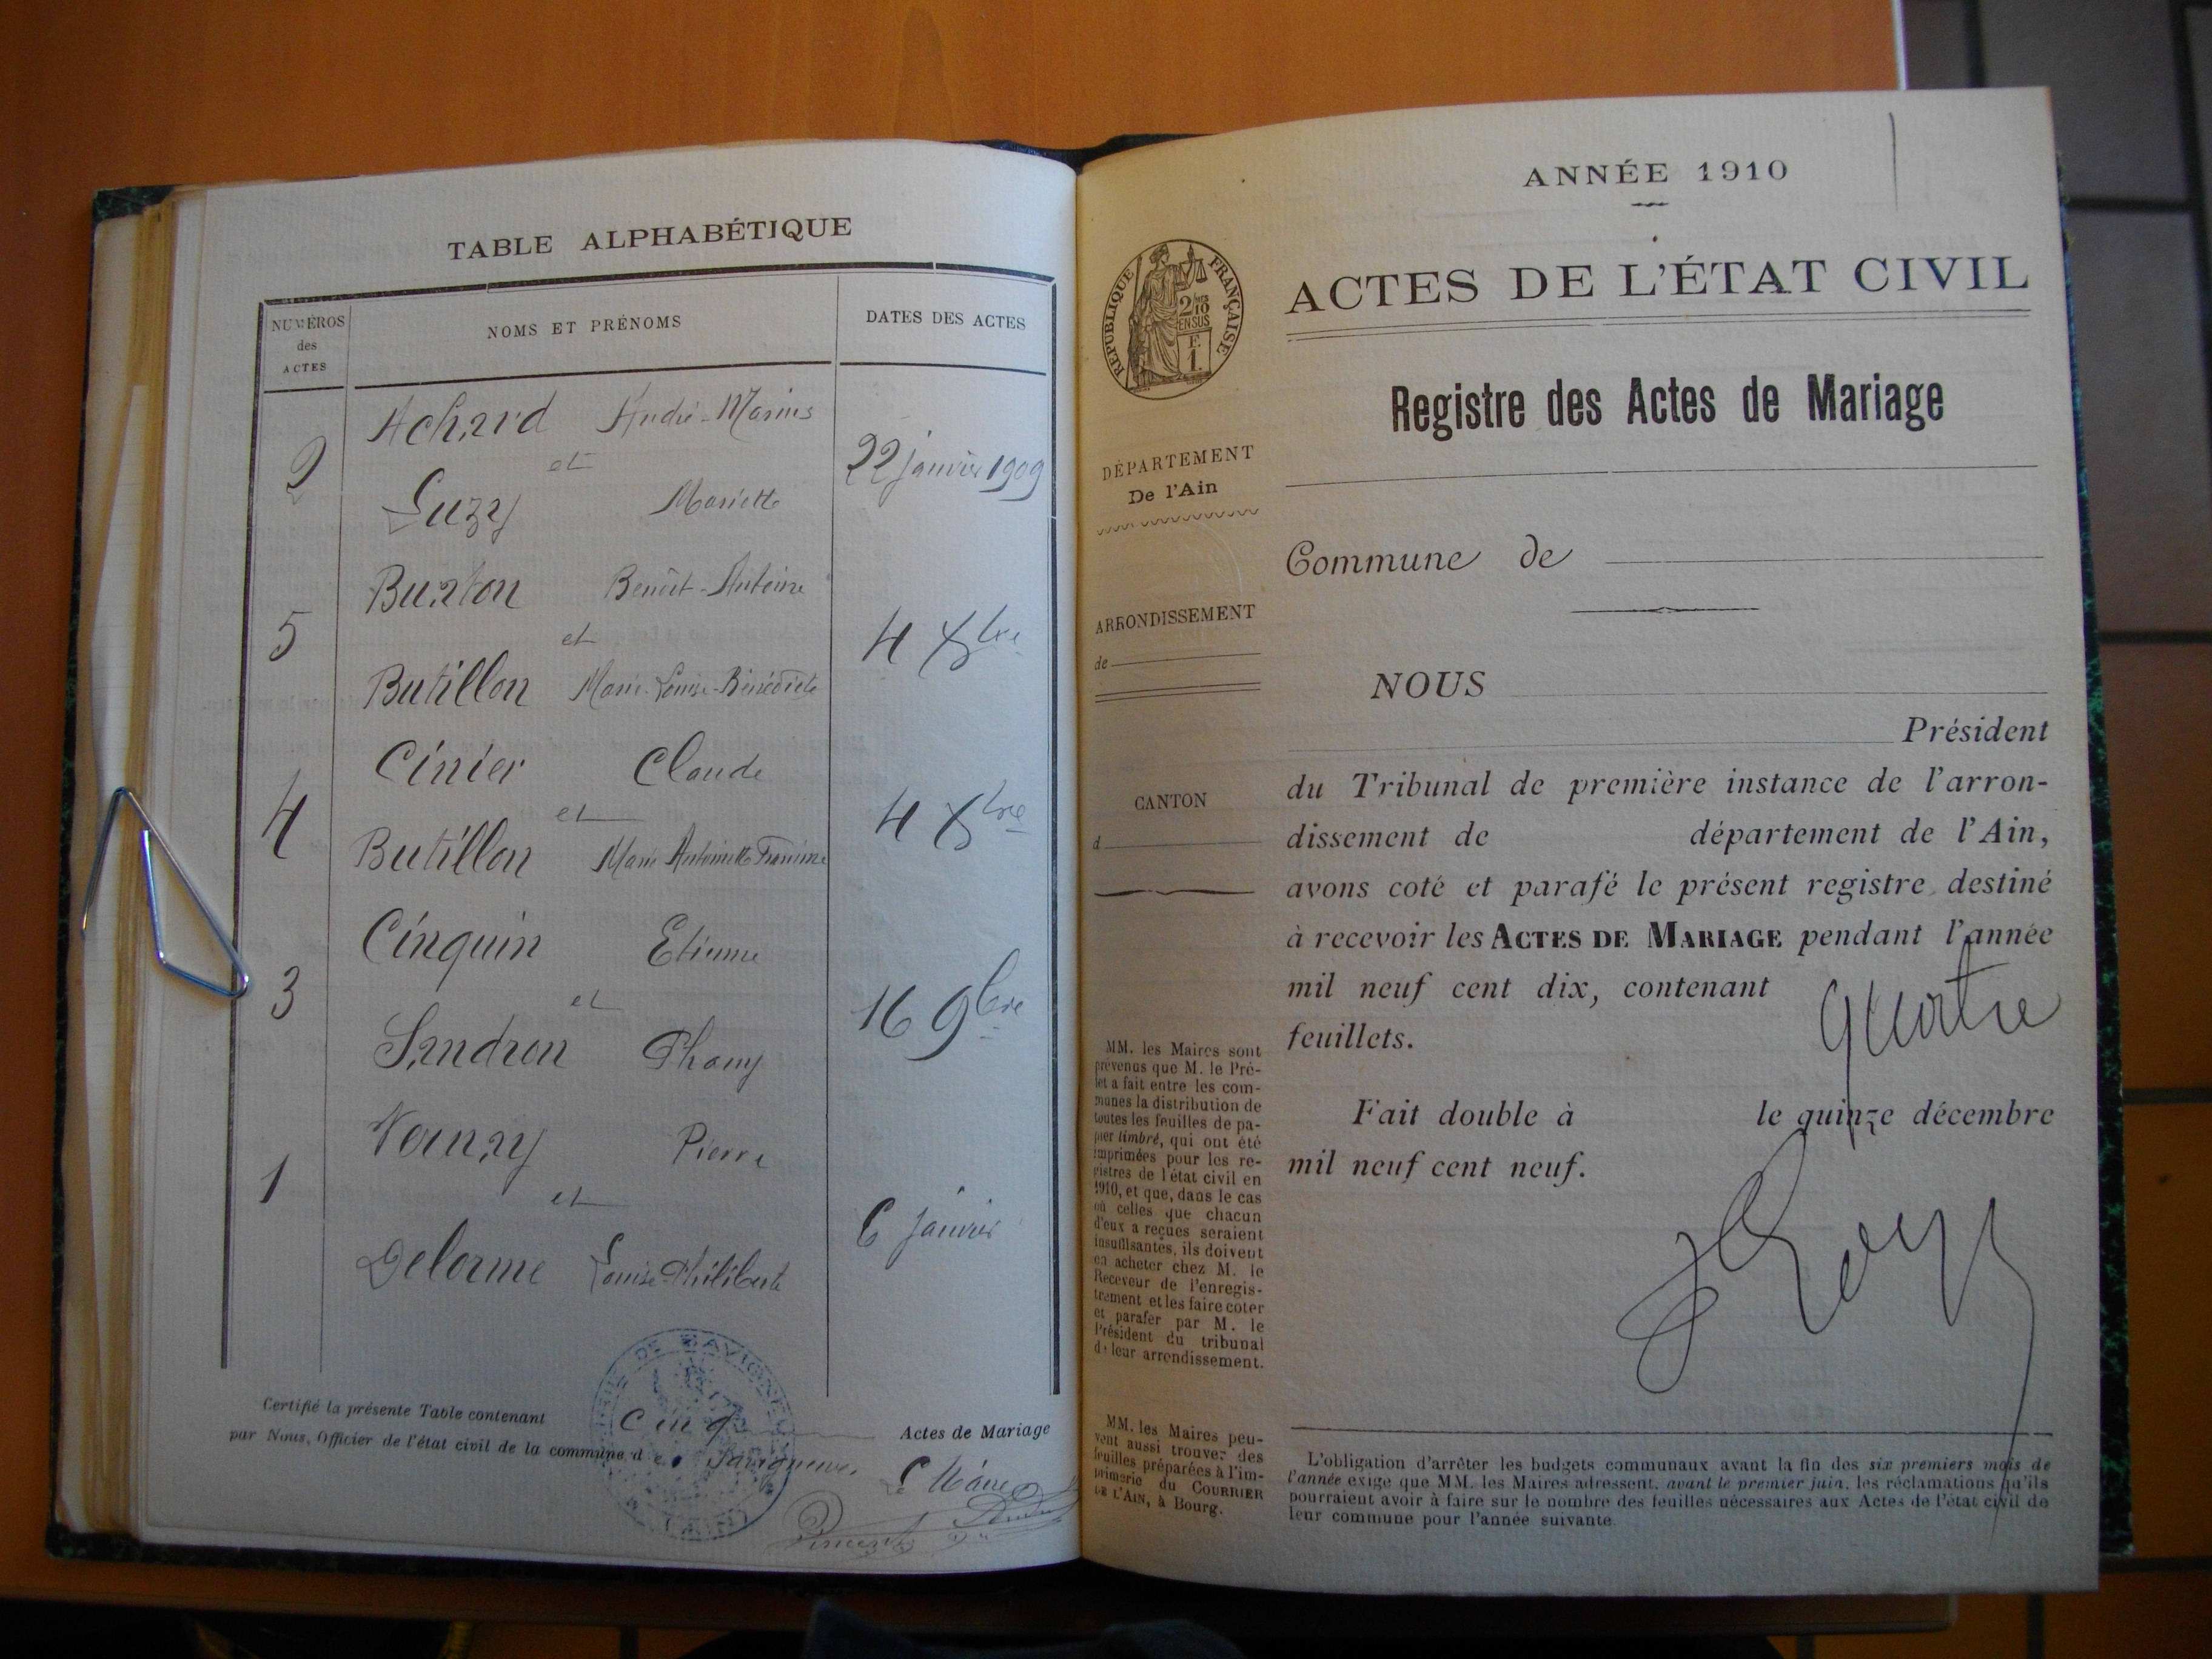 TABLE ALPHABÉTIQUE
NUMÉROS
des
ACTES
NOMS ET PRÉNOMS
DATES DES ACTES
Achard André-Marius
2 et 22 janvier 1909
Luzy Mariette
Burlon Benoît-Antoine
5 et 4 Xbre
Butillon Marie-Louise-Bénédicte
Cinier Claude
4 et 4 Xbre
Butillon Marie Antoinette
Cinquin Etienne
3 et 16 9bre
Sandron Phany
Vernay Pierre
1 et 6 janvier
Delorme Louise Philiberte
Certifié la présente Table contenant cinq Actes de Mariage
par Nous, Officier de l'état civil de la commune de Savigneux
Le Maire
ANNÉE 1910
RÉPUBLIQUE FRANÇAISE
2/10
EN SUS
F.
1.
ACTES DE L'ÉTAT CIVIL
Registre des Actes de Mariage
DÉPARTEMENT
De l'Ain
Commune de
ARRONDISSEMENT
de
CANTON
d
NOUS
Président
du Tribunal de première instance de l'arron-
dissement de département de l'Ain,
avons coté et parafé le présent registre destiné
à recevoir les ACTES DE MARIAGE pendant l'année
mil neuf cent dix, contenant quatre
feuillets.
Fait double à le quinze décembre
mil neuf cent neuf.
MM. les Maires sont
prévenus que M. le Pré-
fet a fait entre les com-
munes la distribution de
toutes les feuilles de pa-
pier timbré, qui ont été
imprimées pour les re-
gistres de l'état civil en
1910, et que, dans le cas
où celles que chacun
d'eux a reçues seraient
insuffisantes, ils doivent
en acheter chez M. le
Receveur de l'enregis-
trement et les faire coter
et parafer par M. le
Président du tribunal
de leur arrondissement.
MM. les Maires peu-
vent aussi trouver des
feuilles préparées à l'im-
primerie du COURRIER
DE L'AIN, à Bourg.
L'obligation d'arrêter les budgets communaux avant la fin des six premiers mois de
l'année exige que MM. les Maires adressent, avant le premier juin, les réclamations qu'ils
pourraient avoir à faire sur le nombre des feuilles nécessaires aux Actes de l'état civil de
leur commune pour l'année suivante.